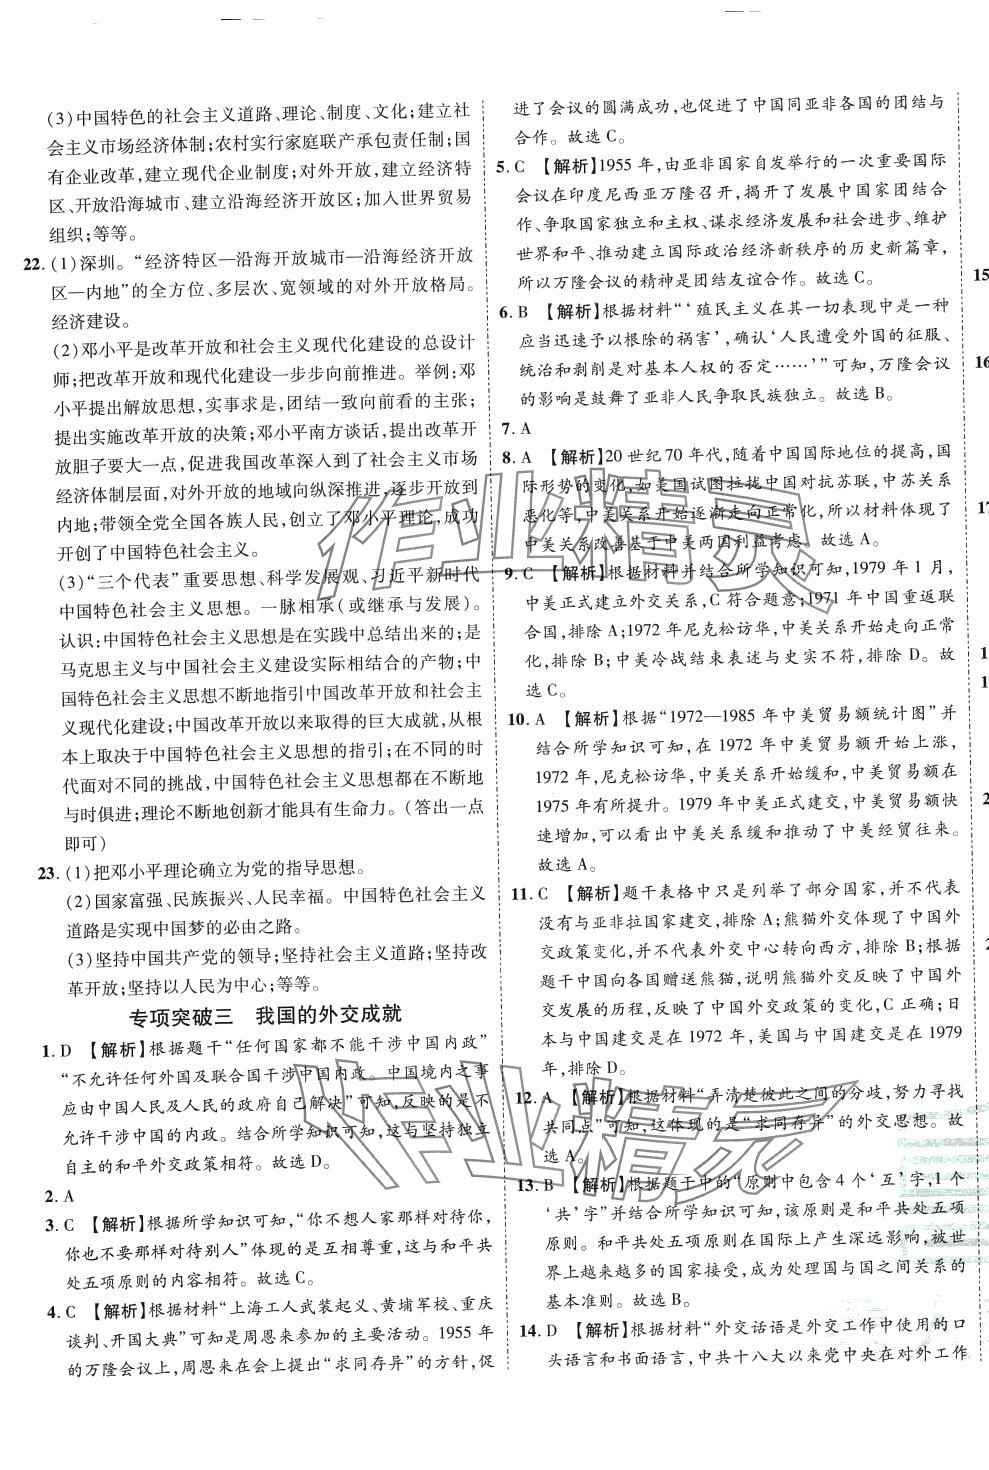 (3)中国特色的社会主义道路、理论、制度、文化;建立社
会主义市场经济体制;农村实行家庭联产承包责任制;国
有企业改革,建立现代企业制度;对外开放,建立经济特
区、开放沿海城市、建立沿海经济开放区;加入世界贸易
组织;等等。
22. (1)深圳。“经济特区—沿海开放城市—沿海经济开放
区—内地”的全方位、多层次、宽领域的对外开放格局。
经济建设。
(2)邓小平是改革开放和社会主义现代化建设的总设计
师;把改革开放和现代化建设一步步向前推进。举例:邓
小平提出解放思想,实事求是,团结一致向前看的主张;
提出实施改革开放的决策;邓小平南方谈话,提出改革开
放胆子要大一点,促进我国改革深入到了社会主义市场
经济体制层面,对外开放的地域向纵深推进,逐步开放到
内地;带领全党全国各族人民,创立了邓小平理论,成功
开创了中国特色社会主义。
(3)“三个代表”重要思想、科学发展观、习近平新时代
中国特色社会主义思想。一脉相承(或继承与发展)。
认识:中国特色社会主义思想是在实践中总结出来的;是
马克思主义与中国社会主义建设实际相结合的产物;中
国特色社会主义思想不断地指引中国改革开放和社会主
义现代化建设;中国改革开放以来取得的巨大成就,从根
本上取决于中国特色社会主义思想的指引;在不同的时
代面对不同的挑战,中国特色社会主义思想都在不断地
与时俱进;理论不断地创新才能具有生命力。(答出一点
即可)
23. (1)把邓小平理论确立为党的指导思想。
(2)国家富强、民族振兴、人民幸福。中国特色社会主义
道路是实现中国梦的必由之路。
(3)坚持中国共产党的领导;坚持社会主义道路;坚持改
革开放;坚持以人民为中心;等等。
专项突破三 我国的外交成就
1. D 【解析】根据题干“任何国家都不能干涉中国内政”
“不允许任何外国及联合国干涉中国内政。中国境内之事
应由中国人民及人民的政府自己解决”可知,反映的是不
允许干涉中国的内政。结合所学知识可知,这与坚持独立
自主的和平外交政策相符。故选 D。
2. A
3. C 【解析】根据所学知识可知,“你不想人家那样对待你,
你也不要那样对待别人”体现的是互相尊重,这与和平共
处五项原则的内容相符。故选 C。
4. C 【解析】根据材料“上海工人武装起义、黄埔军校、重庆
谈判、开国大典”可知是周恩来参加的主要活动。1955 年
的万隆会议上,周恩来在会上提出“求同存异”的方针,促
进了会议的圆满成功,也促进了中国同亚非各国的团结与
合作。故选 C。
5. C 【解析】1955 年,由亚非国家自发举行的一次重要国际
会议在印度尼西亚万隆召开,揭开了发展中国家团结合
作、争取国家独立和主权、谋求经济发展和社会进步、维护
世界和平、推动建立国际政治经济新秩序的历史新篇章,
所以万隆会议的精神是团结友谊合作。故选 C。
6. B 【解析】根据材料“‘殖民主义在其一切表现中是一种
应当迅速予以根除的祸害’,确认‘人民遭受外国的征服、
统治和剥削是对基本人权的否定……’”可知,万隆会议
的影响是鼓舞了亚非人民争取民族独立。故选 B。
7. A
8. A 【解析】20 世纪 70 年代,随着中国国际地位的提高,国
际形势的变化,如美国试图拉拢中国对抗苏联,中苏关系
恶化等,中美关系开始逐渐走向正常化,所以材料体现了
中美关系改善基于中美两国利益考虑。故选 A。
9. C 【解析】根据材料并结合所学知识可知,1979 年 1 月,
中美正式建立外交关系,C 符合题意;1971 年中国重返联
合国,排除 A;1972 年尼克松访华,中美关系开始走向正常
化,排除 B;中美冷战结束表述与史实不符,排除 D。故
选 C。
10. A 【解析】根据“1972—1985 年中美贸易额统计图”并
结合所学知识可知,在 1972 年中美贸易额开始上涨,
1972 年,尼克松访华,中美关系开始缓和,中美贸易额在
1975 年有所提升。1979 年中美正式建交,中美贸易额快
速增加,可以看出中美关系缓和推动了中美经贸往来。
故选 A。
11. C 【解析】题干表格中只是列举了部分国家,并不代表
没有与亚非拉国家建交,排除 A;熊猫外交体现了中国外
交政策变化,并不代表外交中心转向西方,排除 B;根据
题干中国向各国赠送熊猫,说明熊猫外交反映了中国外
交发展的历程,反映了中国外交政策的变化,C 正确;日
本与中国建交是在 1972 年,美国与中国建交是在 1979
年,排除 D。
12. A 【解析】根据材料“弄清楚彼此之间的分歧,努力寻找
共同点”可知,这体现的是“求同存异”的外交思想。故
选 A。
13. B 【解析】根据题干中的“原则中包含 4 个‘互’字,1 个
‘共’字”并结合所学知识可知,该原则是和平共处五项
原则。和平共处五项原则在国际上产生深远影响,被世
界上越来越多的国家接受,成为处理国与国之间关系的
基本准则。故选 B。
14. D 【解析】根据材料“外交话语是外交工作中使用的口
头语言和书面语言,中共十八大以来党中央在对外工作
15
16
17
1
1
2
2
作业精灵
作业精灵